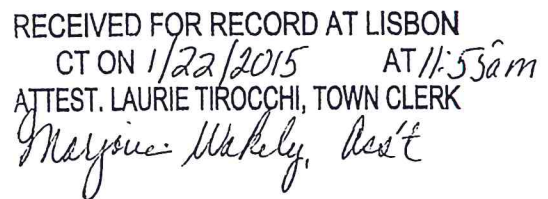 RECEIVED FOR RECORD AT LISBON
CT ON 1/22/2015 AT 11:55am
ATTEST. LAURIE TIROCCHI, TOWN CLERK
Marjorie Wakely, Ass't